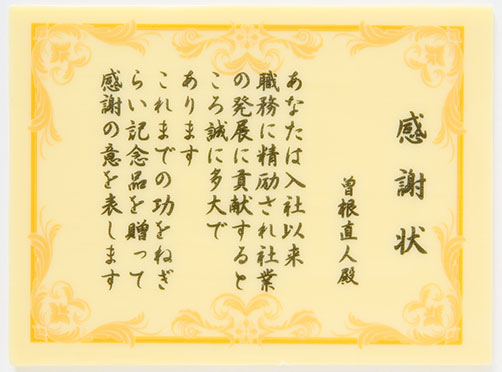 感謝状
曽根直人殿
あなたは入社以来
職務に精励され社業
の発展に貢献すると
ころ誠に多大で
あります
これまでの功をねぎ
らい記念品を贈って
感謝の意を表します